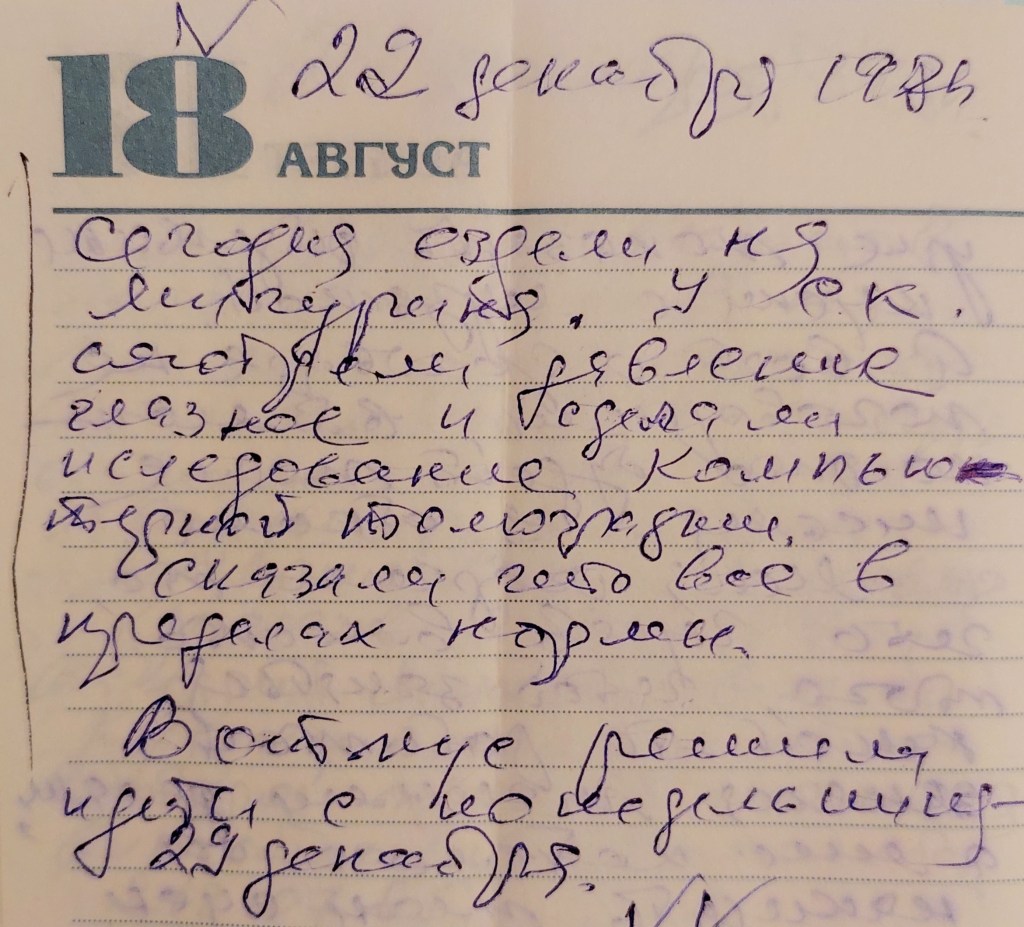 22 декабря
18 АВГУСТ
Сегодня ездели на
У С.К.
смотрели давление
глазное и сделали
иследование компью
терной томографии.
Сказали что все в
пределах нормы.
В отпус решили
идти с понедельника
29 декабря.